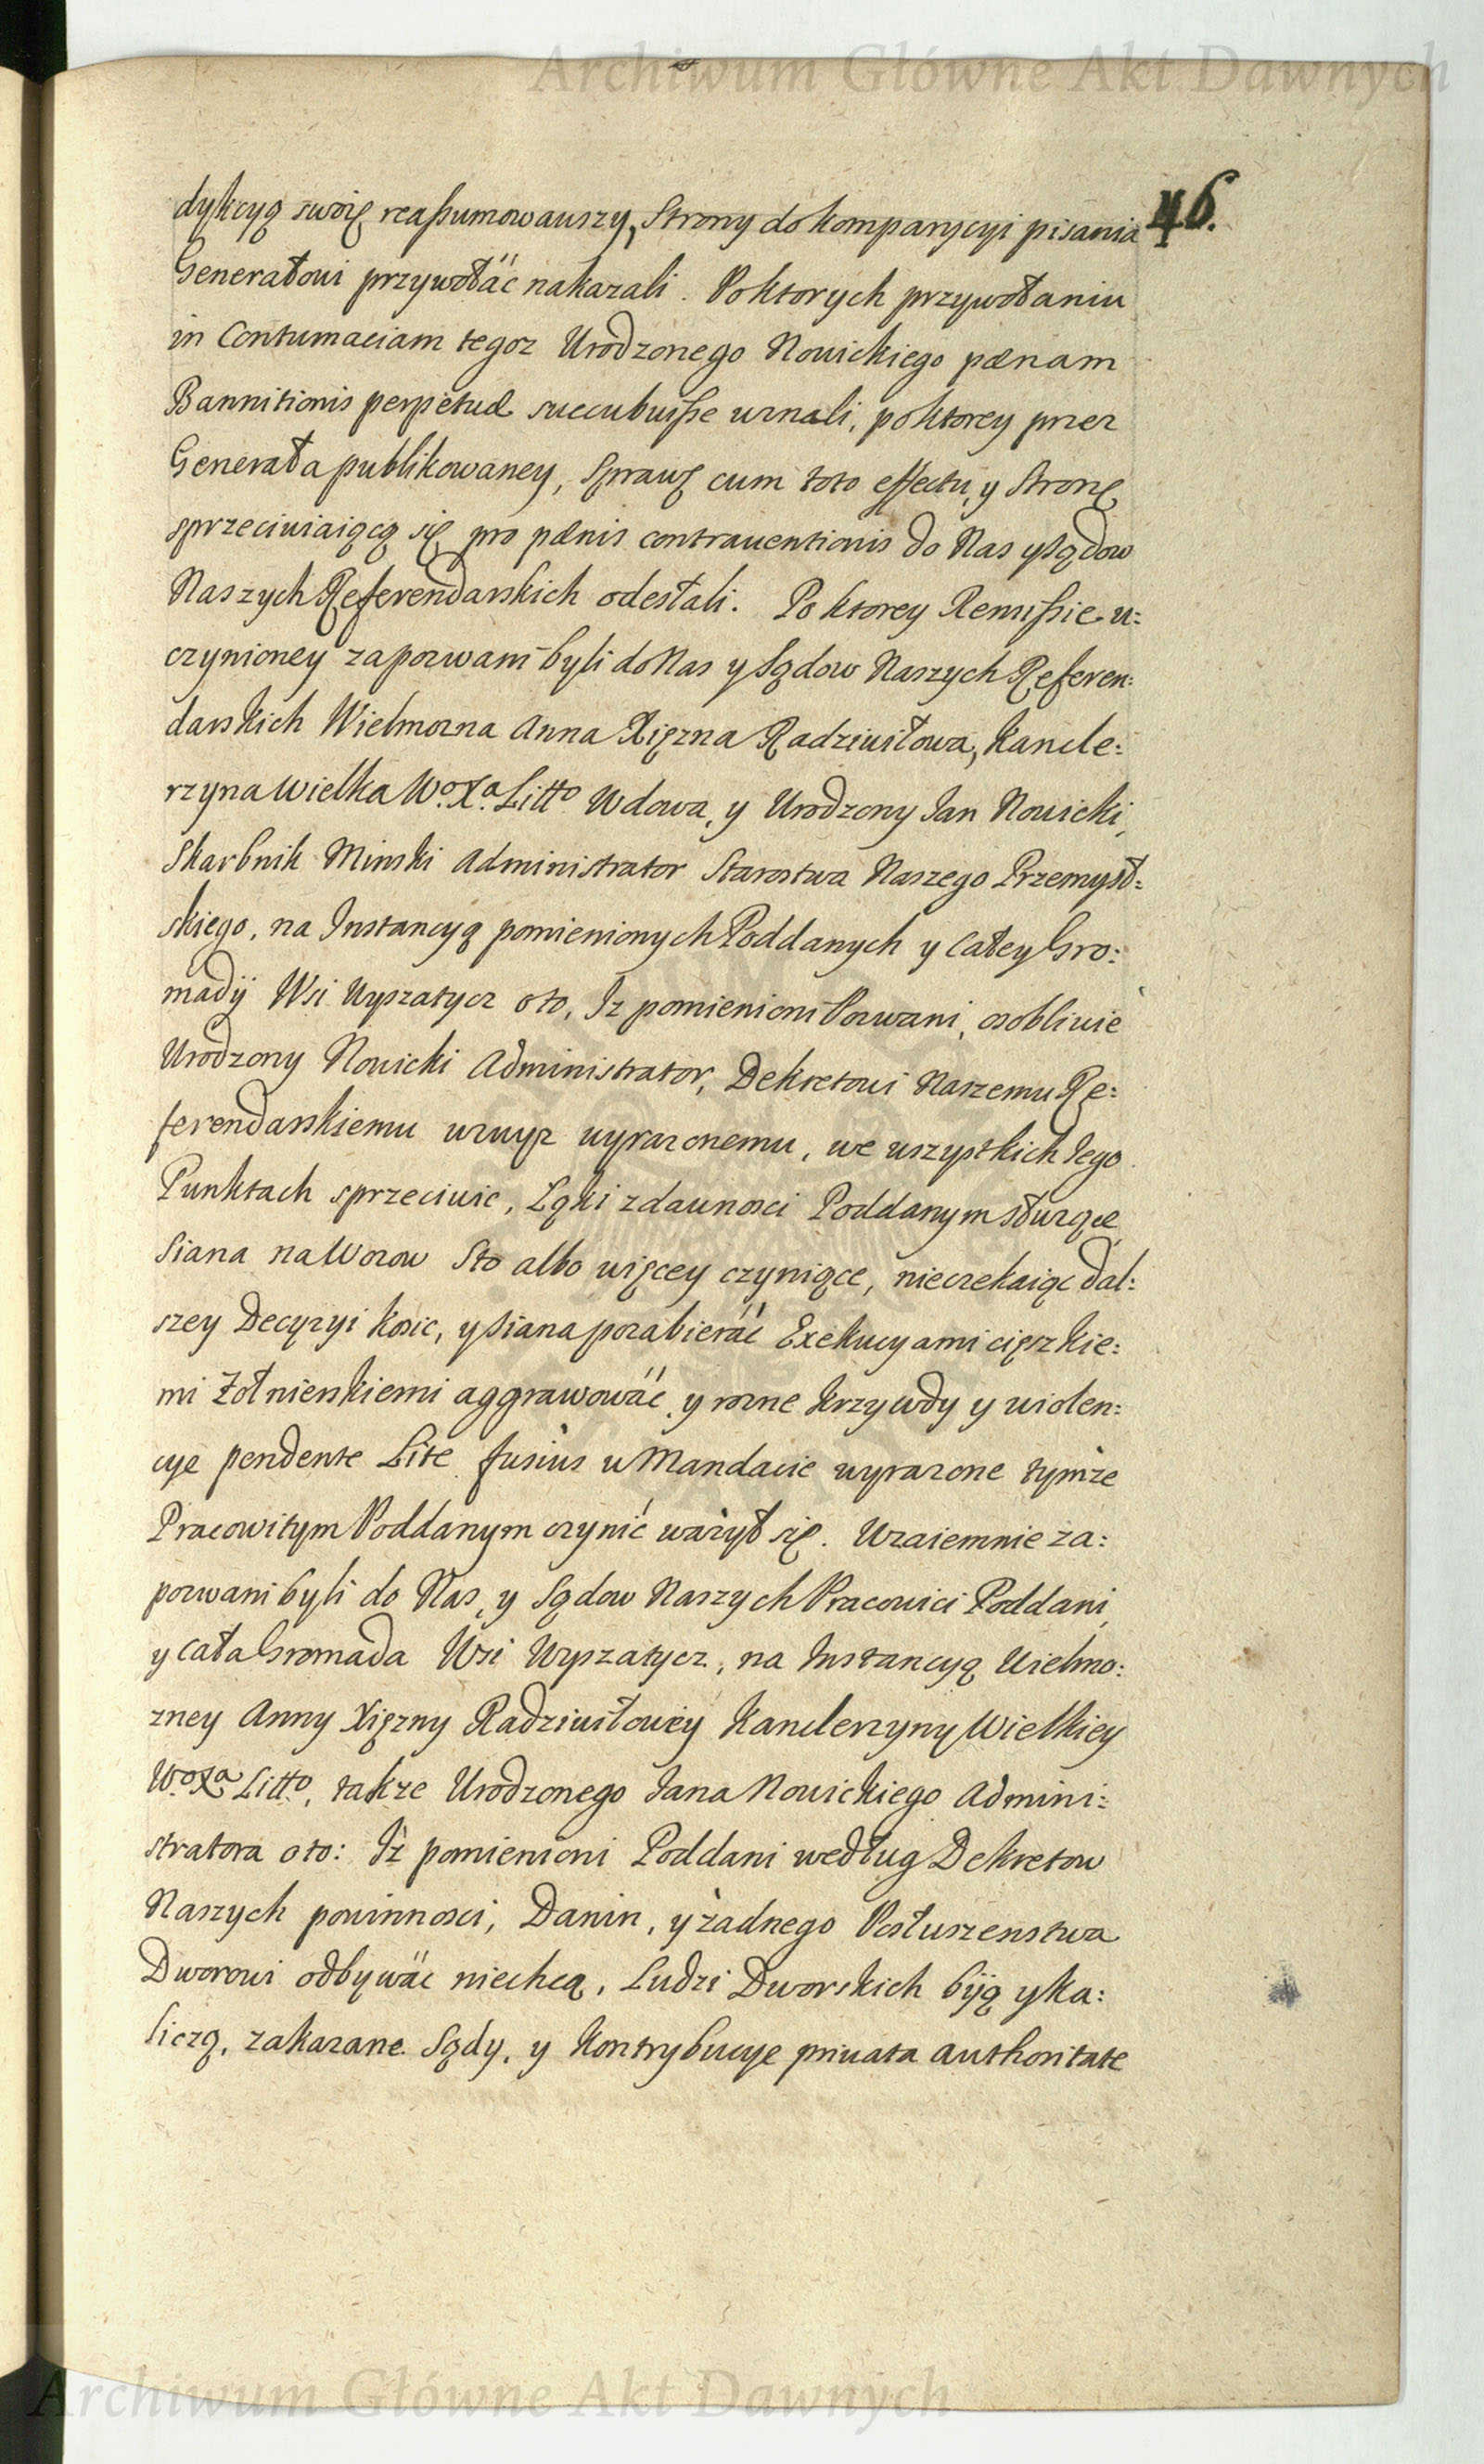 Archiwum Główne Akt Dawnych
46.
dykcyą swoię reaſsumowawszy, Strony do komparycyi pisania
Generałowi przywołać nakazali. Po ktorych przywołaniu
in Contumaciam tegoz Urodzonego Nowickiego pænam
Bannitionis perpetuæ succubuiſse uznali, po ktorey przez
Generała publikowaney, Sprawę cum toto effectu, y Stronę
sprzeciwiaiącą się pro pænis contraventionis do Nas y Sądow
Naszych Referendarskich odesłali. Po ktorey Remiſsie u=
czynioney zapozwani byli do Nas y Sądow Naszych Referen=
darskich Wielmozna Anna Xięzna Radziwiłowa, Kancle=
rzyna Wielka Wo. Xa. Litto Wdowa, y Urodzony Jan Nowicki,
Skarbnik Minski Administrator Starostwa Naszego Przemysł=
skiego, na Instancyą pomienionych Poddanych y całey Gro=
mady Wsi Wyszatycz oto, Jz pomienioni Pozwani, osobliwie
Urodzony Nowicki Administrator, Dekretowi Naszemu Re=
ferendarskiemu wzwyz wyrazonemu, we wszystkich Jego
Punktach sprzeciwic, Łąki zdawnosci Poddanym słuzące,
Siana na Wozow Sto albo więcey czyniące, nieczekaiąc dal=
szey Decyzyi kosic, y Siana pozabierać Exekucyami cięszkie=
mi Żołnierskiemi aggrawować, y rozne krzywdy y wiolen=
cye pendente Lite fusius w Mandacie wyrazone tymże
Pracowitym Poddanym czynić ważył się. Wzaiemnie za=
pozwani byli do Nas, y Sądow Naszych Pracowici Poddani,
y cała Gromada Wsi Wyszatycz, na Instancyą Wielmo=
zney Anny Xięzny Radziwiłowey Kanclerzyny Wielkiey
Wo. Xa. Litto, takze Urodzonego Jana Nowickiego Admini=
stratora oto: Jż pomienioni Poddani według Dekretow
Naszych powinnosci, Danin, y żadnego Posłuszenstwa
Dworowi odbywać niechcą, Ludzi Dworskich biją y ka=
liczą, zakazane Sądy, y Kontrybucye privata authoritate
Archiwum Główne Akt Dawnych